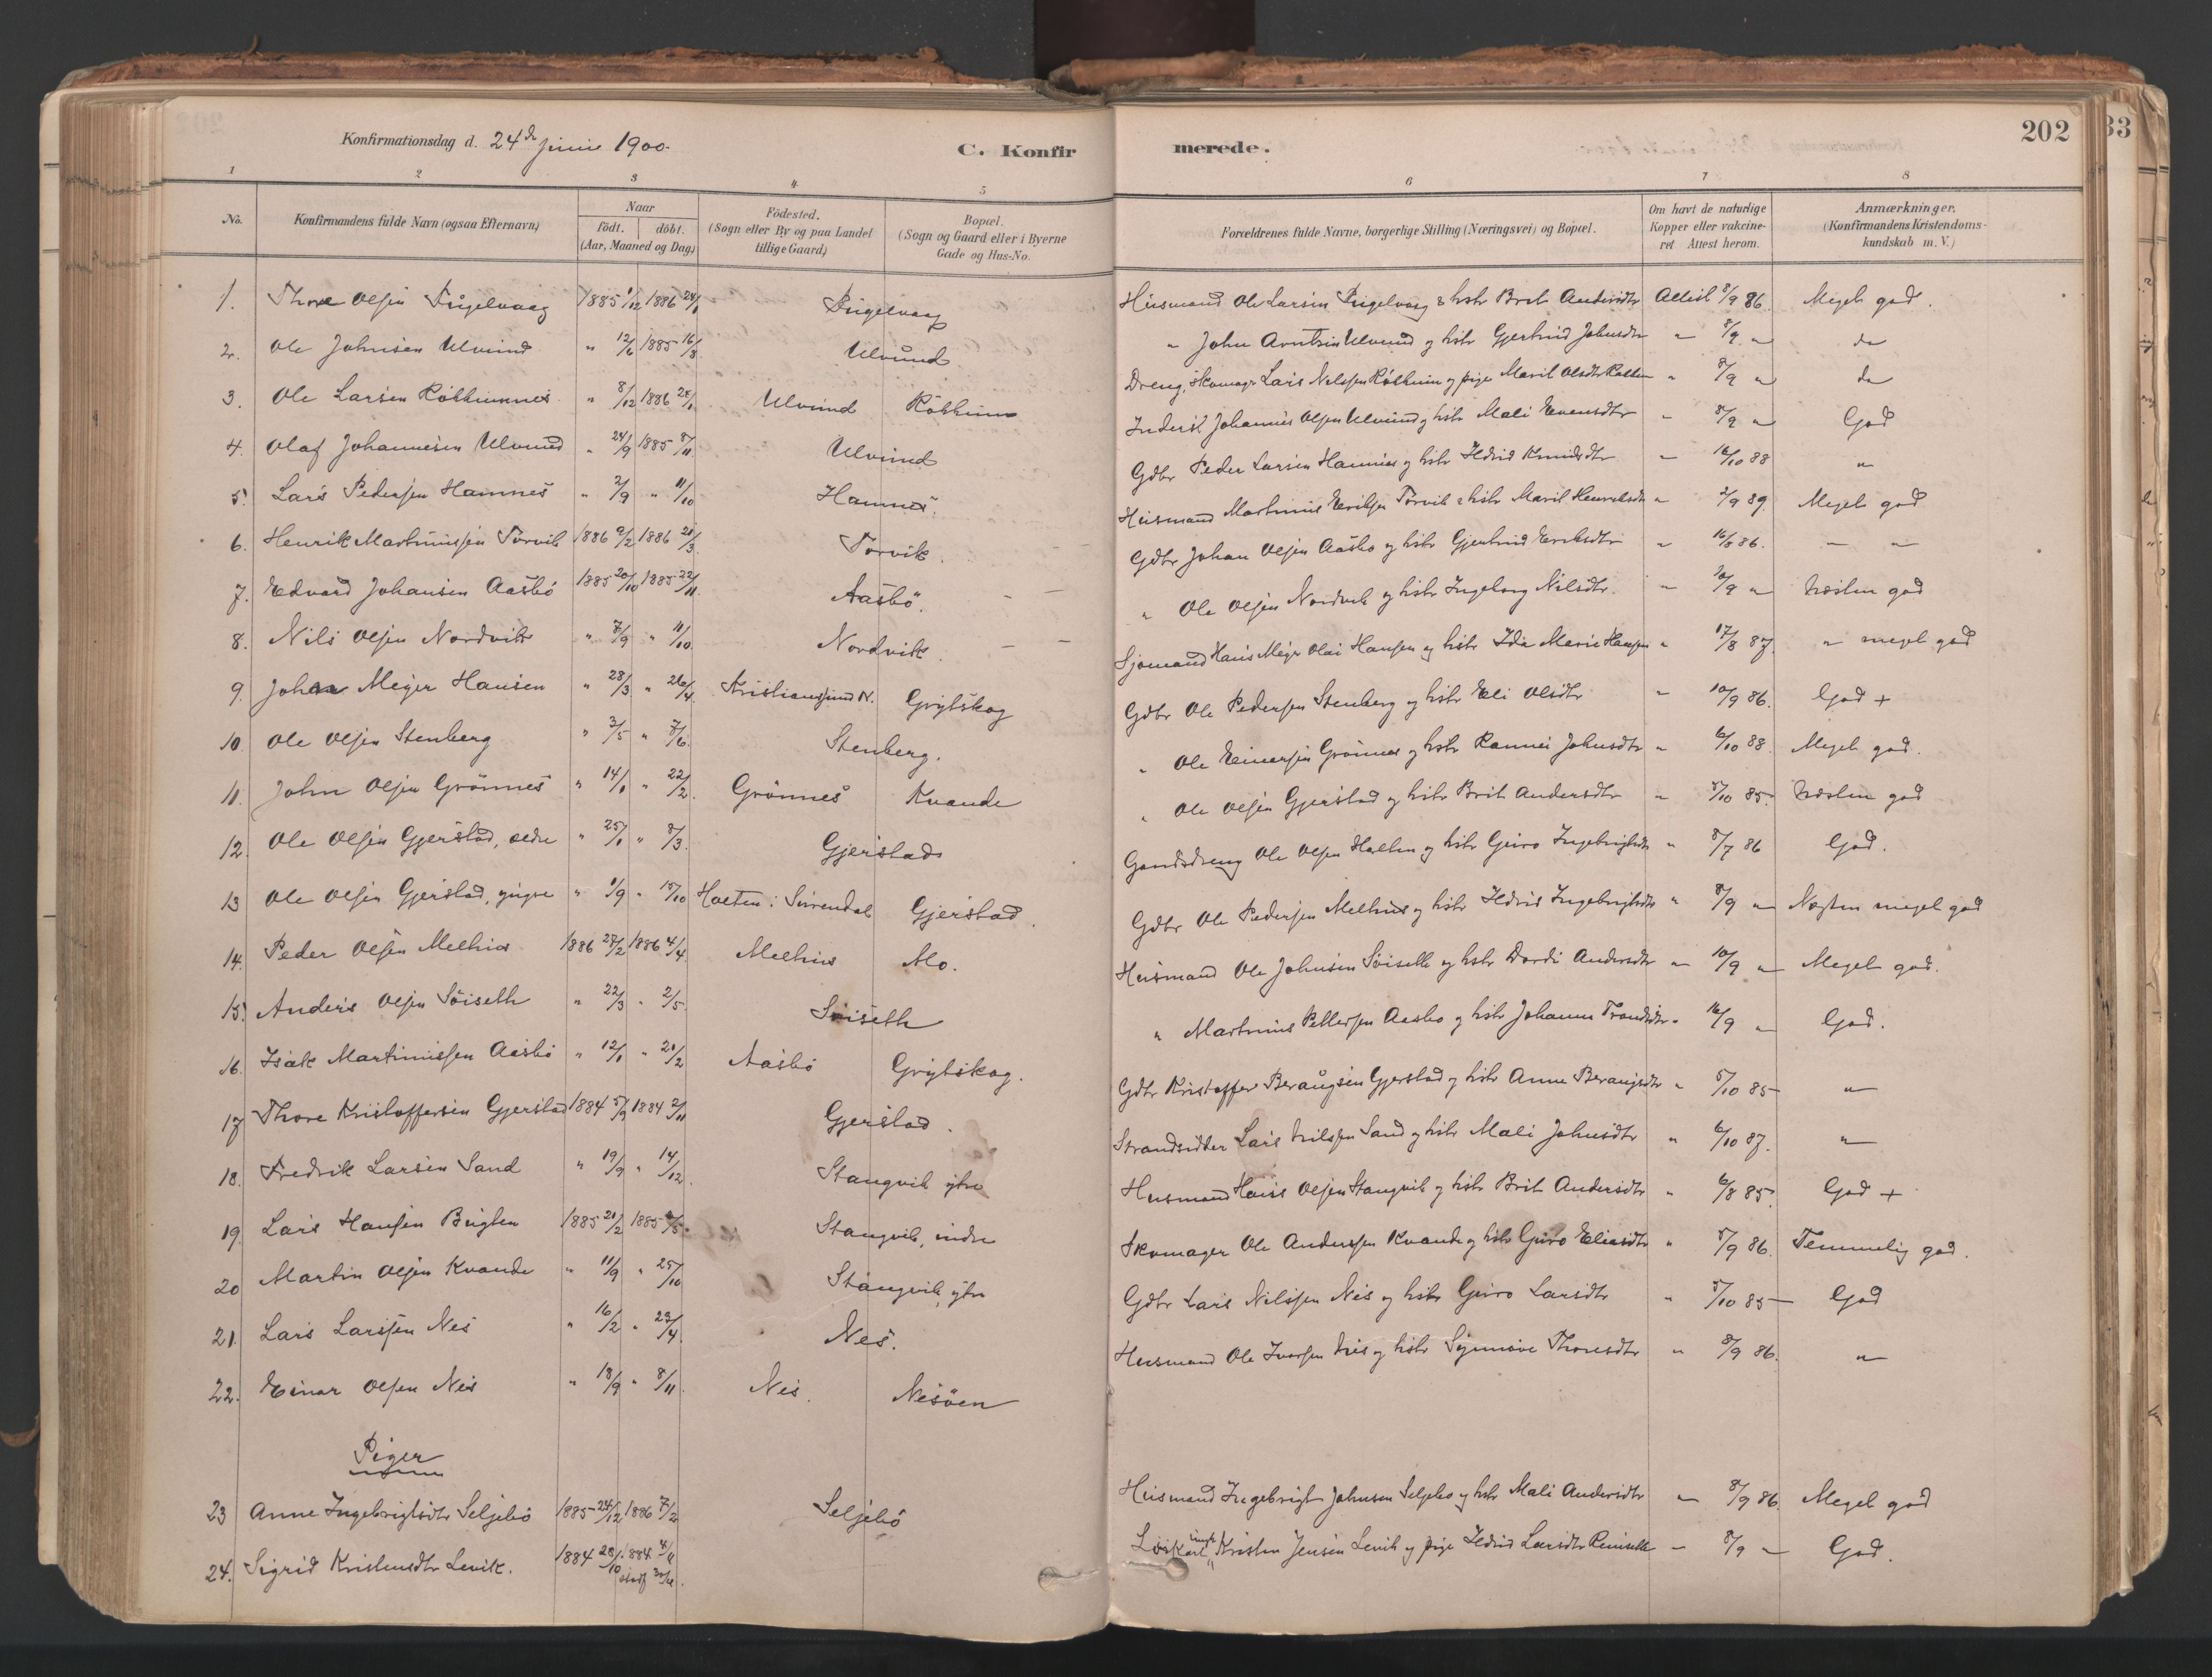 Konfirmationsdag d. 24de Junie 1900.
C. Konfirmerede.
202
33
1 2 3 4 5 6 7 8
No. Konfirmandens fulde Navn (ogsaa Efternavn) Naar födt. döbt. (Aar, Maaned og Dag) Födested. (Sogn eller By og paa Landet tillige Gaard) Bopæl. (Sogn og Gaard eller i Byerne Gade og Hus-No. Forældrenes fulde Navne, borgerlige Stilling (Næringsvei) og Bopæl. Om havt de naturlige Kopper eller vakcineret Attest herom. Anmærkninger, (Konfirmandens Kristendomskundskab m. V.)
1. Thore Olsen Fuglevaag 1885 1/12 1886 24/1 Fuglevaag Husmand Ole Larsen Fuglevaag & hstr Brit Andersdtr Attest 8/9 86. Meget god.
2. Ole Johnsen Ulvund " 12/6 1885 16/8 Ulvund " John Arntsen Ulvund og hstr Gjertrud Johnsdtr " 8/9 " do
3. Ole Larsen " 8/12 1886 Ulvund Dreng, Skomager Lars Nelssen og pige Marit Olsdtr " 8/9 " do
4. Olaf Johannesen Ulvund " 24/9 1885 8/11 Ulvund Inderst Johannes Olsen Ulvund og hstr Mali Evensdtr " 8/9 " God
5. Lars Pedersen Hamnes " 2/9 " 11/10 Hamnes. Gdbr Peder Larsen Hamnes og hstr Ildrid Knudsdtr " 16/10 88 "
6. Henrik Martinussen Torvik 1886 9/2 1886 28/3 Torvik. Husmand Martinus Eriksen Torvik & hstr Marit Henriksdtr " 2/9 89. Meget god
7. Edvard Johansen Aasbö 1885 20/10 1885 22/11. Aasbö. Gdbr Johan Olsen Aasbo og hstr Gjertrud Eriksdtr " 16/8 86. " "
8. Nils Olsen Nordvik " 7/9 " 11/10. Nordvik. " Ole Olsen Nordvik og hstr Ingeborg Nilsdtr. " 10/9 " Næsten god
9. Johan Meyer Hansen " 28/3 " 26/4. Kristianssund N. Grytskog Sjømand Hans Meyer Olai Hansen og hstr Ida Marie Hansen " 17/8 87. " meget god
10. Ole Olsen Stenberg " 3/5 " 7/6. Stenberg. Gdbr Ole Pedersen Stenberg og hstr Eli Olsdtr " 10/9 86. God +
11. John Olsen Grönnes " 14/1 " 22/2. Grönnes Kvande " Ole Einarsen Grönnes og hstr Rannei Johnsdtr " 6/10 88. Meget god.
12. Ole Olsen Gjerstad, ældre " 25/1 " 8/3. Gjerstad " Ole Olsen Gjerstad og hstr Brit Andersdtr " 5/10 85. Næsten god
13 Ole Olsen Gjerstad, yngre " 1/9 " Holten i Surendal Gjerstad. Gaardsdreng Ole Olsen Holten og hstr Guro Ingebrigtsdtr " 8/7 86 God.
14. Peder Olsen Melhus 1886 27/2 1886 4/4. Melhus Mo. Gdbr Ole Pedersen Melhus og hstr Ildrid Ingebrigtsdtr " 8/9 " Næsten meget god
15. Anders Olsen Söiseth " 22/3 " 2/5. Söiseth Husmand Ole Johnsen Söiseth og hstr Dordi Andersdtr " 10/9 " Meget god.
16. Isak Martinussen Aasbö " 12/1 " 21/2 Aasbö Grytskog. " Martinus Pettersen Aasbo og hstr Johanna Trondsdtr " 16/9 " God.
17 Thore Kristoffersen Gjerstad 1884 5/9 1884 2/11 Gjerstad. Gdbr Kristoffer Gjerstad og hstr Anne " 5/10 85 "
18. Fredrik Larsen Sand " 19/9 " 14/12. Stangvik ytre Strandsidder Lars Nilssen Sand og hstr Mali Johnsdtr " 6/10 87. "
19. Lars Hansen 1885 21/2 1885 Stangvik, indre Husmand Hans Olsen Stangvik og hstr Brit Andersdtr " 6/8 85. God +
20 Martin Olsen Kvande " 11/9 " 25/10 Stangvik, ytre Skomager Ole Anderssen Kvande og hstr Guro Eliasdtr " 5/9 86. Temmelig god.
21. Lars Larssen Nes " 16/2 " 23/4. Nes. Gdbr Lars Nilssen Nes og hstr Guro Larsdtr " 5/10 85 God
22. Einar Olsen Nes " 18/9 " 8/11. Nes. Nesöen Husmand Ole Ivarsen Nes og hstr Synnöve Thoresdtr " 8/9 86. "
Piger
23 Anne Ingebrigtsdtr Seljebö 1885 24/12 1886 7/2 Seljebö Husmand Ingebrigt Johnsen Seljebo og hstr Mali Andersdtr " 8/9 86. Meget god
24. Sigrid Kristensdtr Levik. 1884 28/10 1884 Löskarl, Kristen Jensen Levik og pige Ildrid Larsdtr " 8/9 " God.